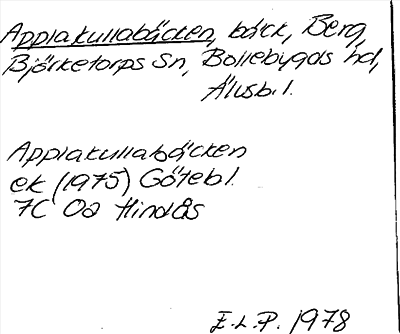 Applakullabäcken, bäck, Berg,
Björketorps Sn, Bollebygds hd,
Älvsb. l.
Applakullabäcken
ek (1975) Götebl.
7C 0a Hindås
E.L.P. 1978